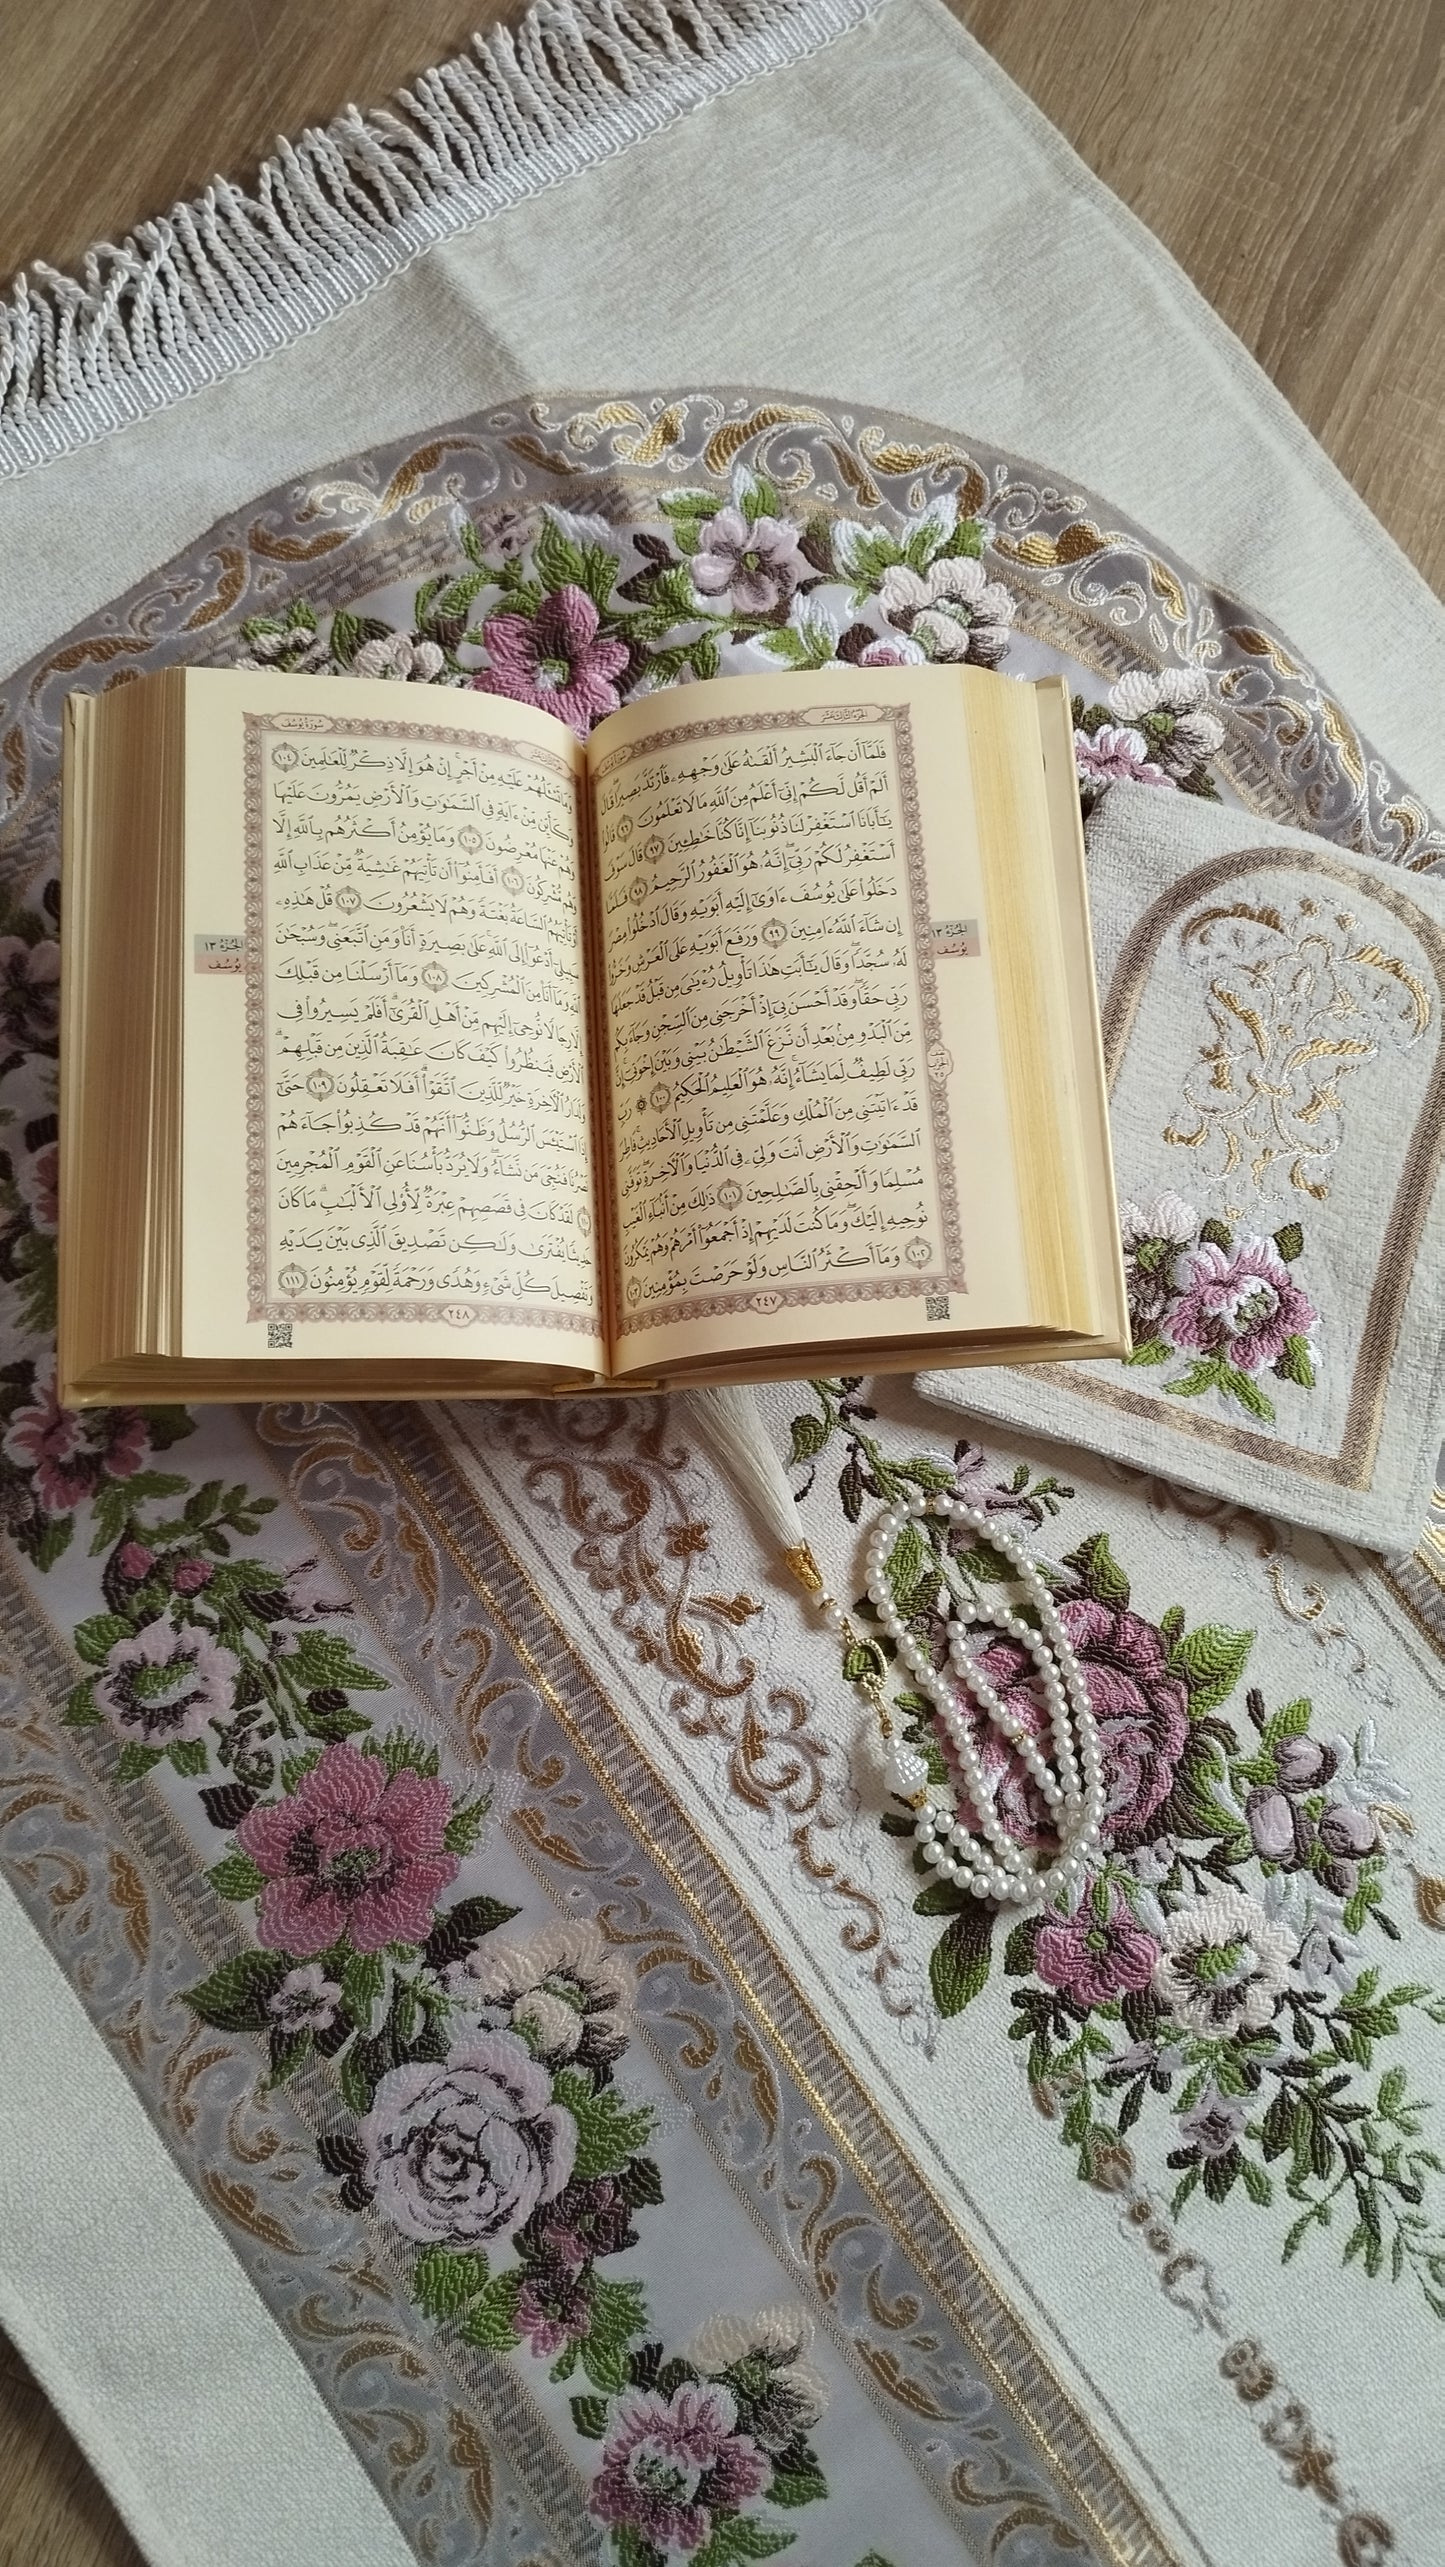 الجزء الثالث عشر
سورة يوسف
فَلَمَّآ أَن جَآءَ ٱلْبَشِيرُ أَلْقَىٰهُ عَلَىٰ وَجْهِهِۦ فَٱرْتَدَّ بَصِيرًا ۖ قَالَ
أَلَمْ أَقُل لَّكُمْ إِنِّىٓ أَعْلَمُ مِنَ ٱللَّهِ مَا لَا تَعْلَمُونَ ٩٦ قَالُوا۟
يَـٰٓأَبَانَا ٱسْتَغْفِرْ لَنَا ذُنُوبَنَآ إِنَّا كُنَّا خَـٰطِـِٔينَ ٩٧ قَالَ سَوْفَ
أَسْتَغْفِرُ لَكُمْ رَبِّىٓ ۖ إِنَّهُۥ هُوَ ٱلْغَفُورُ ٱلرَّحِيمُ ٩٨ فَلَمَّا
دَخَلُوا۟ عَلَىٰ يُوسُفَ ءَاوَىٰٓ إِلَيْهِ أَبَوَيْهِ وَقَالَ ٱدْخُلُوا۟ مِصْرَ
إِن شَآءَ ٱللَّهُ ءَامِنِينَ ٩٩ وَرَفَعَ أَبَوَيْهِ عَلَى ٱلْعَرْشِ وَخَرُّوا۟
لَهُۥ سُجَّدًا ۖ وَقَالَ يَـٰٓأَبَتِ هَـٰذَا تَأْوِيلُ رُءْيَـٰىَ مِن قَبْلُ قَدْ جَعَلَهَا
رَبِّى حَقًّا ۖ وَقَدْ أَحْسَنَ بِىٓ إِذْ أَخْرَجَنِى مِنَ ٱلسِّجْنِ وَجَآءَ بِكُم
مِّنَ ٱلْبَدْوِ مِنۢ بَعْدِ أَن نَّزَغَ ٱلشَّيْطَـٰنُ بَيْنِى وَبَيْنَ إِخْوَتِىٓ ۚ إِنَّ
رَبِّى لَطِيفٌ لِّمَا يَشَآءُ ۚ إِنَّهُۥ هُوَ ٱلْعَلِيمُ ٱلْحَكِيمُ ١٠٠ ۞ رَبِّ
قَدْ ءَاتَيْتَنِى مِنَ ٱلْمُلْكِ وَعَلَّمْتَنِى مِن تَأْوِيلِ ٱلْأَحَادِيثِ ۚ فَاطِرَ
ٱلسَّمَـٰوَٰتِ وَٱلْأَرْضِ أَنتَ وَلِىِّۦ فِى ٱلدُّنْيَا وَٱلْـَٔاخِرَةِ ۖ تَوَفَّنِى
مُسْلِمًا وَأَلْحِقْنِى بِٱلصَّـٰلِحِينَ ١٠١ ذَٰلِكَ مِنْ أَنۢبَآءِ ٱلْغَيْبِ
نُوحِيهِ إِلَيْكَ ۖ وَمَا كُنتَ لَدَيْهِمْ إِذْ أَجْمَعُوٓا۟ أَمْرَهُمْ وَهُمْ يَمْكُرُونَ
١٠٢ وَمَآ أَكْثَرُ ٱلنَّاسِ وَلَوْ حَرَصْتَ بِمُؤْمِنِينَ ١٠٣
الجزء ١٣
يوسف
نصف
الحزب
٢٥
٢٤٧
سورة يوسف
وَمَا تَسْـَٔلُهُمْ عَلَيْهِ مِنْ أَجْرٍ ۚ إِنْ هُوَ إِلَّا ذِكْرٌ لِّلْعَـٰلَمِينَ ١٠٤
وَكَأَيِّن مِّنْ ءَايَةٍ فِى ٱلسَّمَـٰوَٰتِ وَٱلْأَرْضِ يَمُرُّونَ عَلَيْهَا
وَهُمْ عَنْهَا مُعْرِضُونَ ١٠٥ وَمَا يُؤْمِنُ أَكْثَرُهُم بِٱللَّهِ إِلَّا
وَهُم مُّشْرِكُونَ ١٠٦ أَفَأَمِنُوٓا۟ أَن تَأْتِيَهُمْ غَـٰشِيَةٌ مِّنْ عَذَابِ ٱللَّهِ
أَوْ تَأْتِيَهُمُ ٱلسَّاعَةُ بَغْتَةً وَهُمْ لَا يَشْعُرُونَ ١٠٧ قُلْ هَـٰذِهِۦ
سَبِيلِىٓ أَدْعُوٓا۟ إِلَى ٱللَّهِ ۚ عَلَىٰ بَصِيرَةٍ أَنَا۠ وَمَنِ ٱتَّبَعَنِى ۖ وَسُبْحَـٰنَ
ٱللَّهِ وَمَآ أَنَا۠ مِنَ ٱلْمُشْرِكِينَ ١٠٨ وَمَآ أَرْسَلْنَا مِن قَبْلِكَ
إِلَّا رِجَالًا نُّوحِىٓ إِلَيْهِم مِّنْ أَهْلِ ٱلْقُرَىٰٓ ۗ أَفَلَمْ يَسِيرُوا۟ فِى
ٱلْأَرْضِ فَيَنظُرُوا۟ كَيْفَ كَانَ عَـٰقِبَةُ ٱلَّذِينَ مِن قَبْلِهِمْ ۗ
وَلَدَارُ ٱلْـَٔاخِرَةِ خَيْرٌ لِّلَّذِينَ ٱتَّقَوْا۟ ۗ أَفَلَا تَعْقِلُونَ ١٠٩ حَتَّىٰٓ
إِذَا ٱسْتَيْـَٔسَ ٱلرُّسُلُ وَظَنُّوٓا۟ أَنَّهُمْ قَدْ كُذِبُوا۟ جَآءَهُمْ
نَصْرُنَا فَنُجِّىَ مَن نَّشَآءُ ۖ وَلَا يُرَدُّ بَأْسُنَا عَنِ ٱلْقَوْمِ ٱلْمُجْرِمِينَ
١١٠ لَقَدْ كَانَ فِى قَصَصِهِمْ عِبْرَةٌ لِّأُو۟لِى ٱلْأَلْبَـٰبِ ۗ مَا كَانَ
حَدِيثًا يُفْتَرَىٰ وَلَـٰكِن تَصْدِيقَ ٱلَّذِى بَيْنَ يَدَيْهِ
وَتَفْصِيلَ كُلِّ شَىْءٍ وَهُدًى وَرَحْمَةً لِّقَوْمٍ يُؤْمِنُونَ ١١١
الجزء ١٣
يوسف
٢٤٨